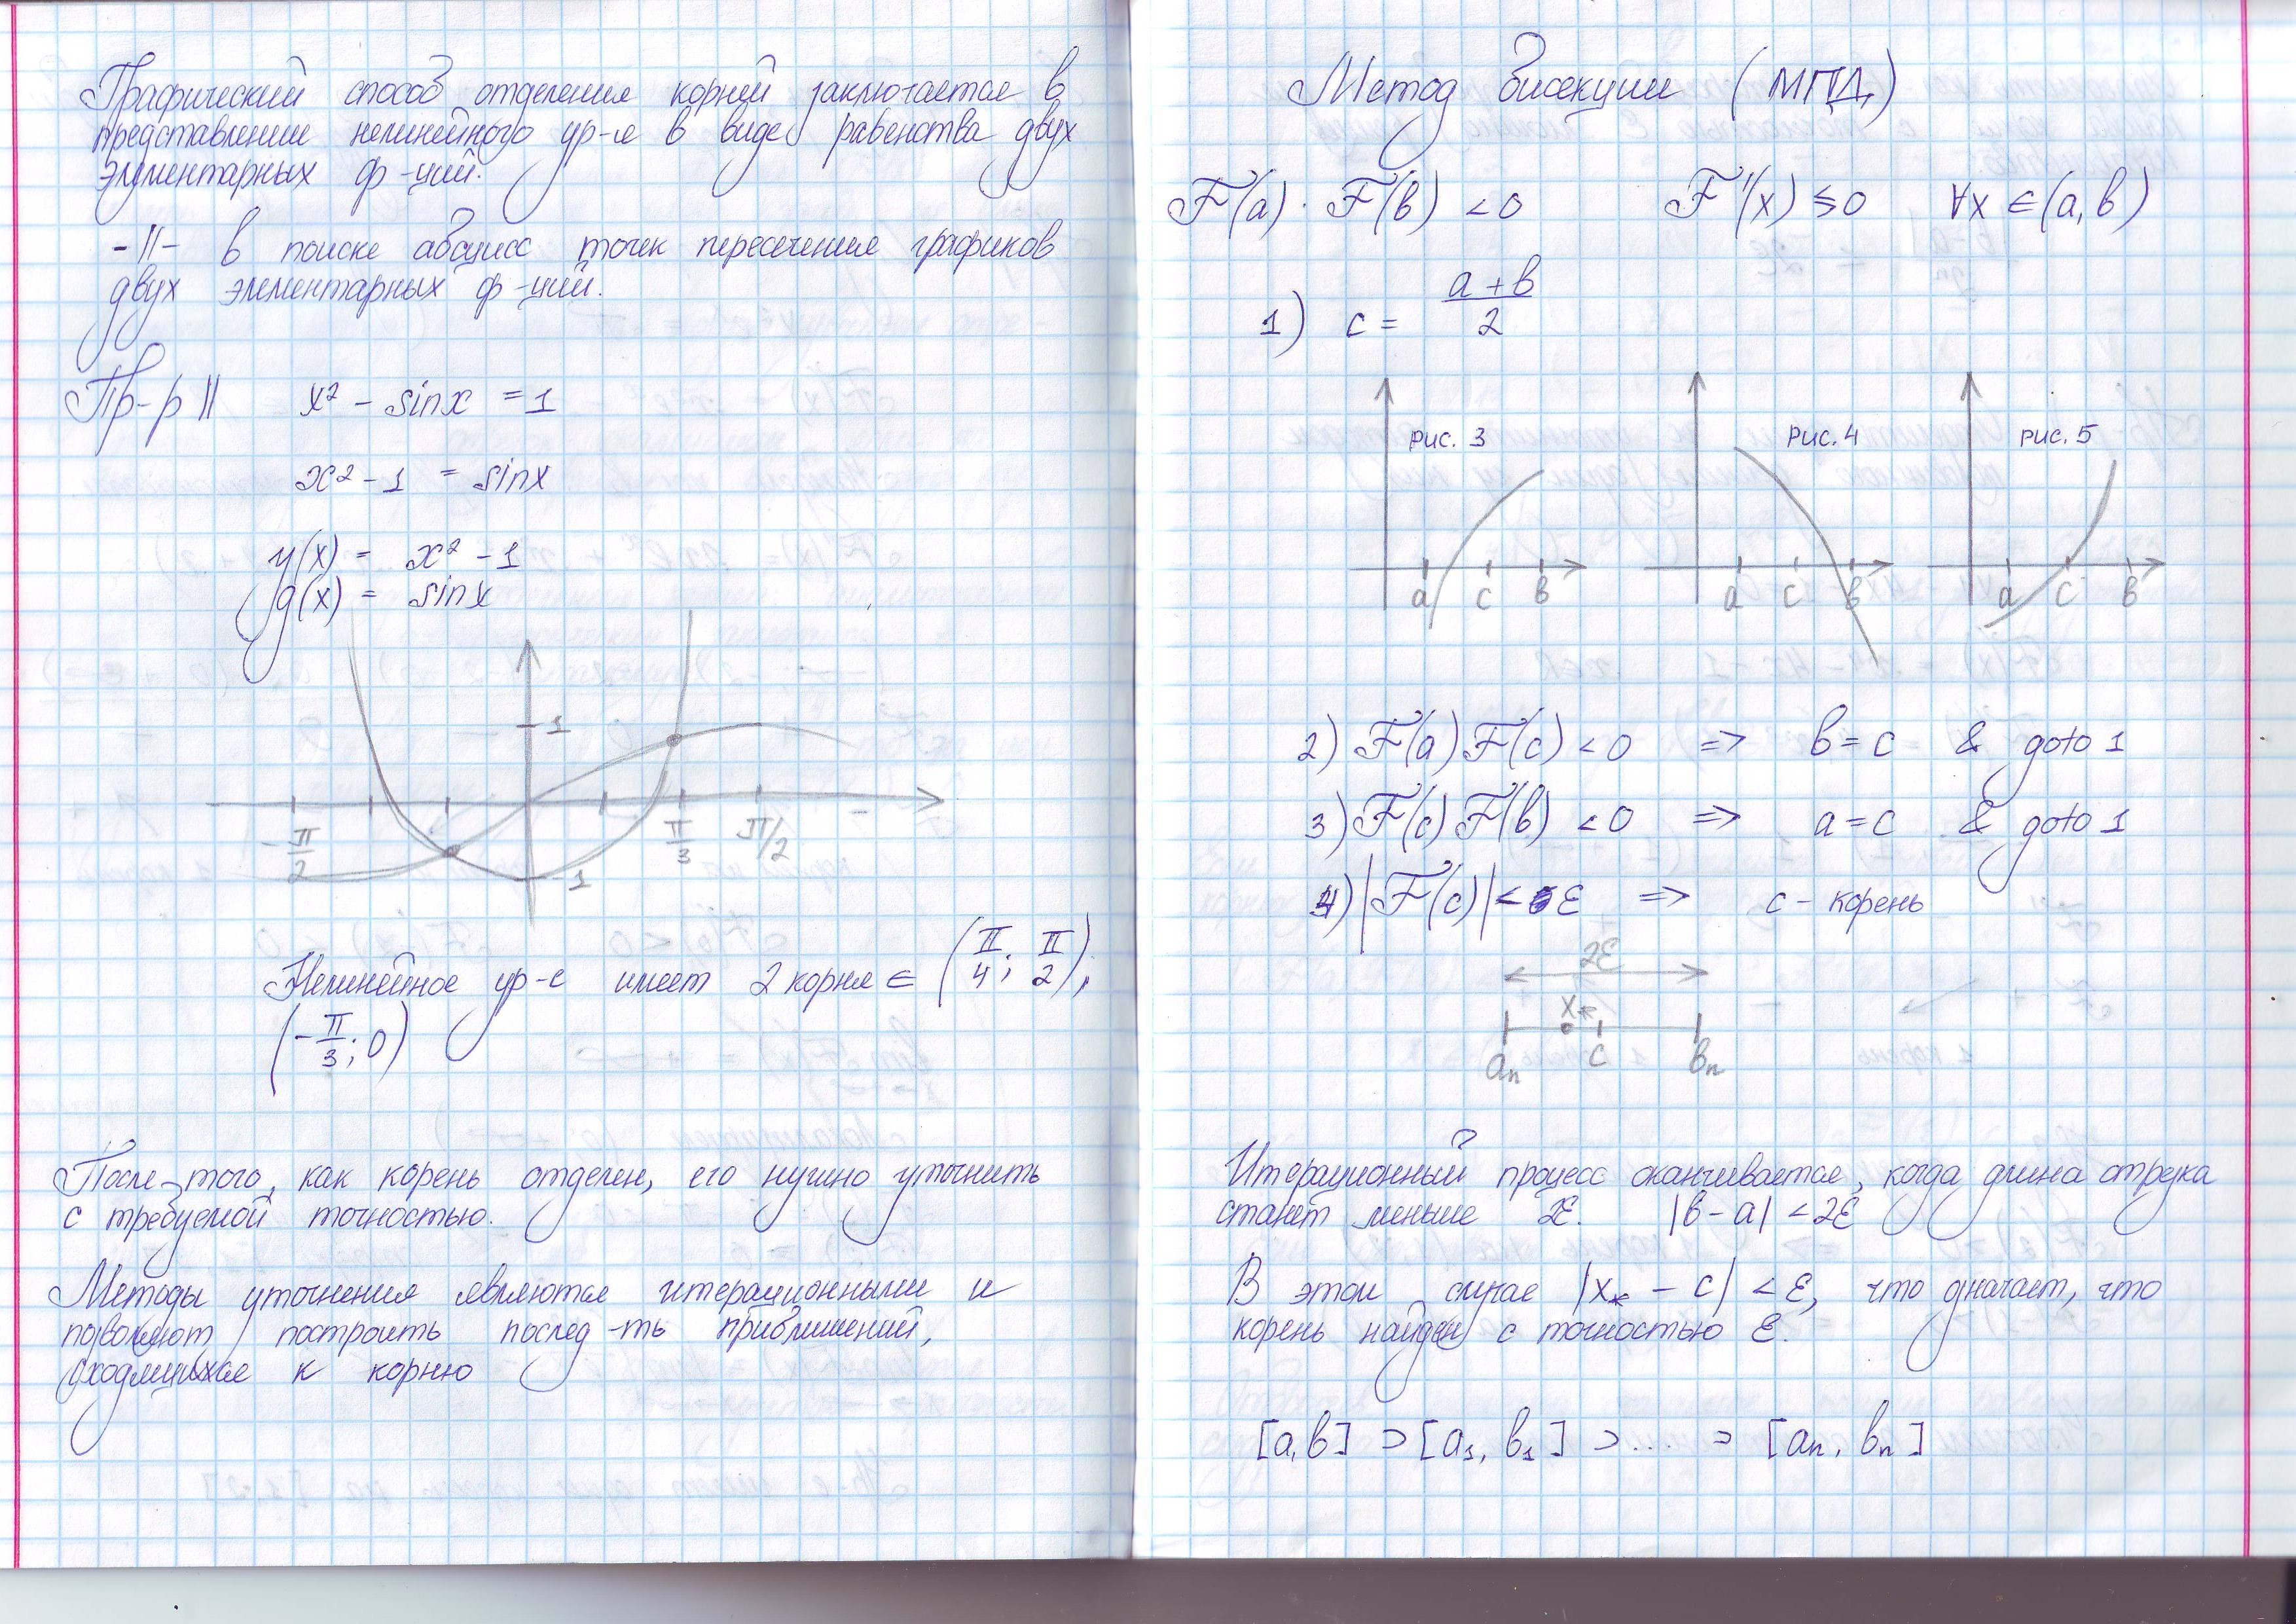 Графический способ отделения корней заключается в
представлении нелинейного ур-я в виде равенства двух
элементарных ф-ций.
-||- в поиске абсцисс точек пересечения графиков
двух элементарных ф-ций.
Пр-р || x² - sinx = 1
x² - 1 = sinx
y(x) = x² - 1
g(x) = sinx
1
-π/2 π/3 π/2
-1
Нелинейное ур-е имеет 2 корня ∈ (π/4; π/2),
(-π/3; 0)
После того, как корень отделен, его нужно уточнить
с требуемой точностью.
Методы уточнения являются итерационными и
позволяют построить послед-ть приближений,
сходящихся к корню
Метод бисекции (МПД)
F(a) · F(b) < 0 F'(x) ≶ 0 ∀x ∈ (a, b)
1) c = (a + b)/2
рис. 3 рис. 4 рис. 5
a c b a c b a c b
2) F(a) F(c) < 0 => b = c & goto 1
3) F(c) F(b) < 0 => a = c & goto 1
4) |F(c)| < ε => c - корень
2ε
x*
aₙ c bₙ
Итерационный процесс оканчивается, когда длина отрезка
станет меньше 2ε. |b - a| < 2ε
В этом случае |x* - c| < ε, что значает, что
корень найден с точностью ε.
[a, b] ⊃ [a₁, b₁] ⊃ .... ⊃ [aₙ, bₙ]